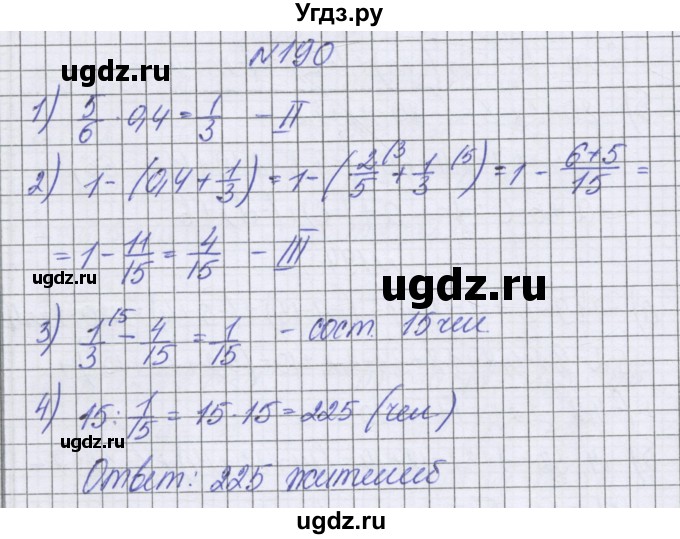 Угдз.ру
№190
ugdz.ru
1) 5/6 · 0,4 = 1/3 - II
ugdz.ru
2) 1 - (0,4 + 1/3) = 1 - (2/5 (3 + 1/3 (5) = 1 - 6+5/15 =
= 1 - 11/15 = 4/15 - III
ugdz.ru
ugdz.ru
3) 1/3 (5 - 4/15 = 1/15 - сост. 15 чел
4) 15 : 1/15 = 15 · 15 = 225 (чел)
ugdz.ru
Ответ: 225 жителей
ugdz.ru